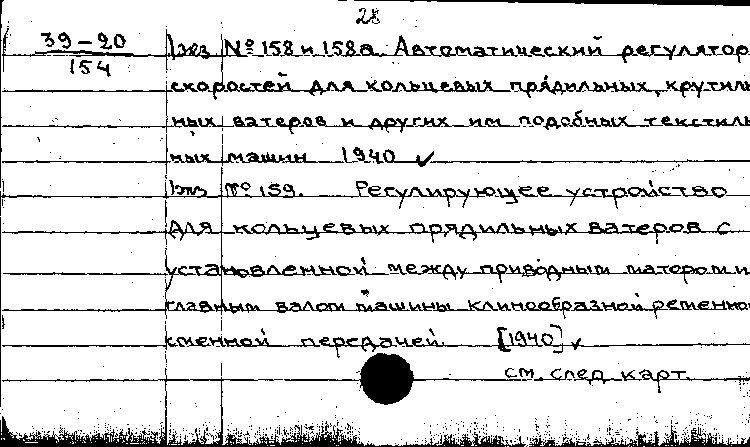 28
39-20 1 экз № 158 и 158а. Автоматический регулятор
154
скоростей для кольцевых прядильных, крутиль
ных ватеров и других им подобных текстиль
ных машин 1940 ✓
1 экз № 159. Регулирующее устройство
для кольцевых прядильных ватеров с
установленной между приводным матером и
главным валом машины клинообразной ременно
сменной передачей [1940] ✓
см. след. карт.